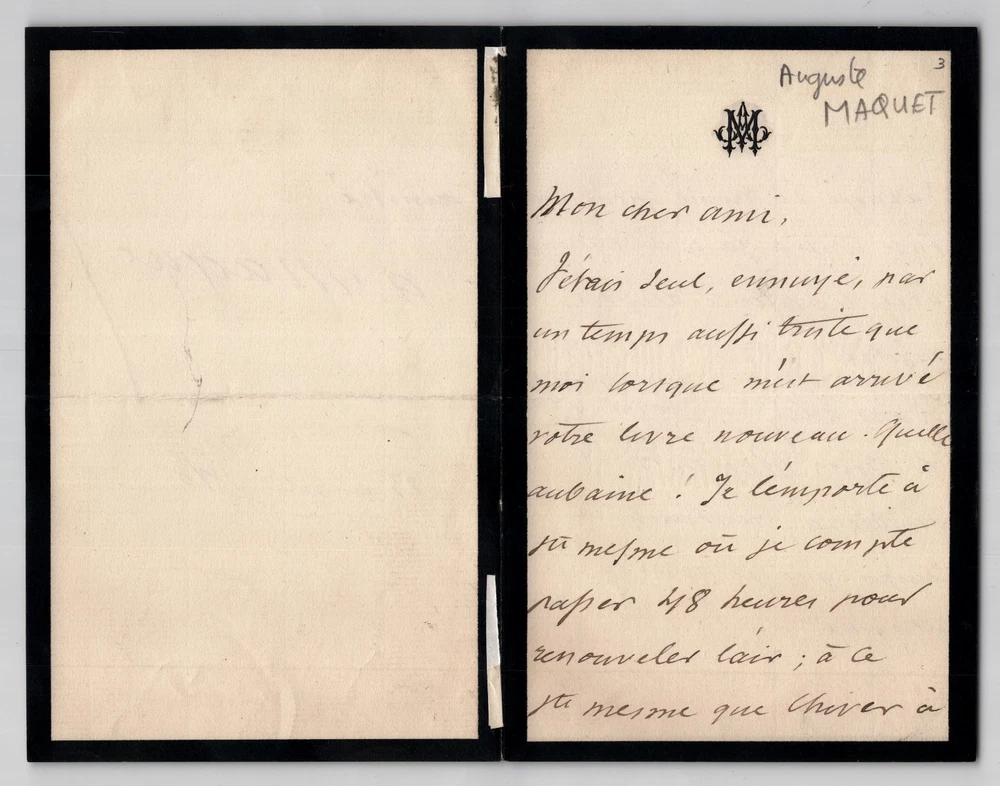 3
Auguste
MAQUET
AM
Mon cher ami,
J'étais seul, ennuyé, par
un temps aussi triste que
moi lorsque m'est arrivé
votre livre nouveau. Quelle
aubaine ! Je l'emporte à
Ste mesme où je compte
passer 48 heures pour
renouveler l'air ; à ce
Ste mesme que l'hiver à